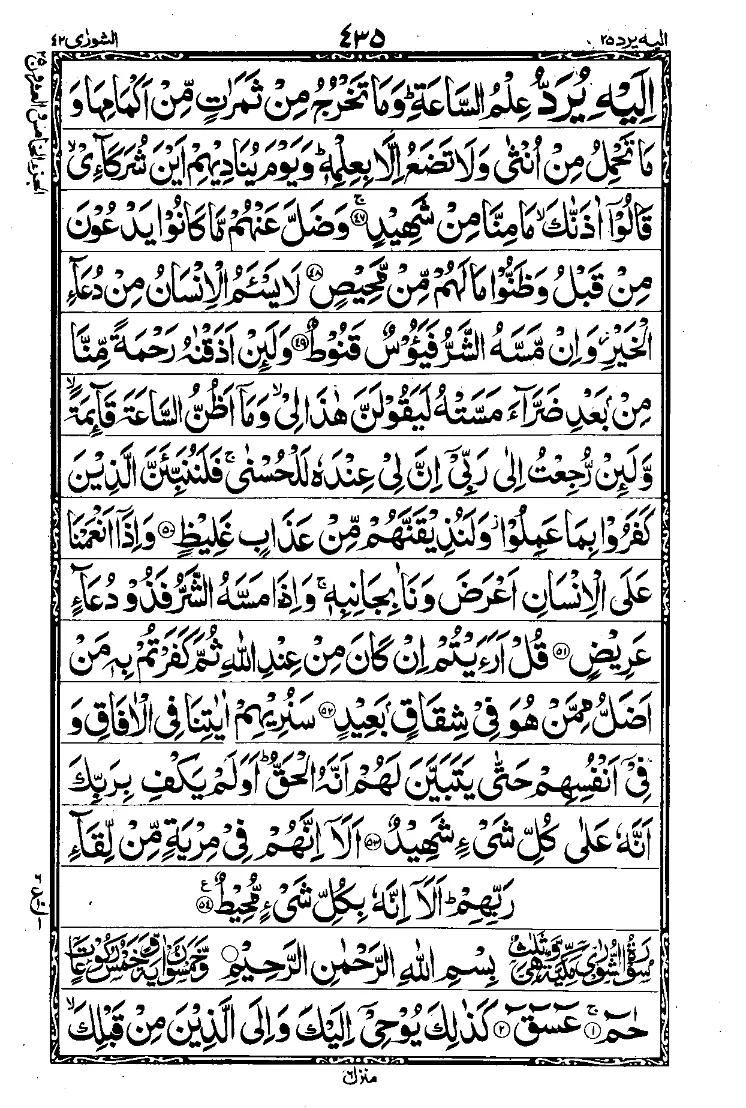 اليه يرد ٢٥
٤٣٥
الشورٰى ٤٢
اِلَيْهِ يُرَدُّ عِلْمُ السَّاعَةِ ؕ وَمَا تَخْرُجُ مِنْ ثَمَرٰتٍ مِّنْ اَكْمَامِهَا وَ
مَا تَحْمِلُ مِنْ اُنْثٰى وَلَا تَضَعُ اِلَّا بِعِلْمِهٖ ؕ وَيَوْمَ يُنَادِيْهِمْ اَيْنَ شُرَكَآءِىْ ۙ
قَالُوْۤا اٰذَنّٰكَ ۙ مَا مِنَّا مِنْ شَهِيْدٍ ۚ ﴿٤٧﴾ وَضَلَّ عَنْهُمْ مَّا كَانُوْا يَدْعُوْنَ
مِنْ قَبْلُ وَظَنُّوْا مَا لَهُمْ مِّنْ مَّحِيْصٍ ﴿٤٨﴾ لَا يَسْـَٔمُ الْاِنْسَانُ مِنْ دُعَآءِ
الْخَيْرِ ۫ وَاِنْ مَّسَّهُ الشَّرُّ فَيَـُٔوْسٌ قَنُوْطٌ ﴿٤٩﴾ وَلَئِنْ اَذَقْنٰهُ رَحْمَةً مِّنَّا
مِنْۢ بَعْدِ ضَرَّآءَ مَسَّتْهُ لَيَقُوْلَنَّ هٰذَا لِىْ ۙ وَمَاۤ اَظُنُّ السَّاعَةَ قَآئِمَةً ۙ
وَّلَئِنْ رُّجِعْتُ اِلٰى رَبِّىْۤ اِنَّ لِىْ عِنْدَهٗ لَلْحُسْنٰى ۚ فَلَنُنَبِّئَنَّ الَّذِيْنَ
كَفَرُوْا بِمَا عَمِلُوْا ؗ وَلَنُذِيْقَنَّهُمْ مِّنْ عَذَابٍ غَلِيْظٍ ﴿٥٠﴾ وَاِذَاۤ اَنْعَمْنَا
عَلَى الْاِنْسَانِ اَعْرَضَ وَنَاٰ بِجَانِبِهٖ ۚ وَاِذَا مَسَّهُ الشَّرُّ فَذُوْ دُعَآءٍ
عَرِيْضٍ ﴿٥١﴾ قُلْ اَرَءَيْتُمْ اِنْ كَانَ مِنْ عِنْدِ اللّٰهِ ثُمَّ كَفَرْتُمْ بِهٖ مَنْ
اَضَلُّ مِمَّنْ هُوَ فِىْ شِقَاقٍۭ بَعِيْدٍ ﴿٥٢﴾ سَنُرِيْهِمْ اٰيٰتِنَا فِى الْاٰفَاقِ وَ
فِىْۤ اَنْفُسِهِمْ حَتّٰى يَتَبَيَّنَ لَهُمْ اَنَّهُ الْحَقُّ ؕ اَوَلَمْ يَكْفِ بِرَبِّكَ
اَنَّهٗ عَلٰى كُلِّ شَىْءٍ شَهِيْدٌ ﴿٥٣﴾ اَلَاۤ اِنَّهُمْ فِىْ مِرْيَةٍ مِّنْ لِّقَآءِ
رَبِّهِمْ ؕ اَلَاۤ اِنَّهٗ بِكُلِّ شَىْءٍ مُّحِيْطٌ ﴿٥٤﴾
سُوْرَةُ الشُّوْرٰى مَكِّيَّةٌ وَّهِىَ ثَلٰثٌ بِسْمِ اللّٰهِ الرَّحْمٰنِ الرَّحِيْمِ وَّخَمْسُوْنَ اٰيَةً وَّخَمْسُ رُكُوْعَاتٍ
حٰمٓ ۚ ﴿١﴾ عٓسٓقٓ ﴿٢﴾ كَذٰلِكَ يُوْحِىْۤ اِلَيْكَ وَاِلَى الَّذِيْنَ مِنْ قَبْلِكَ ۙ
منزل ٦
الجزء الخامس والعشرون ٢٥